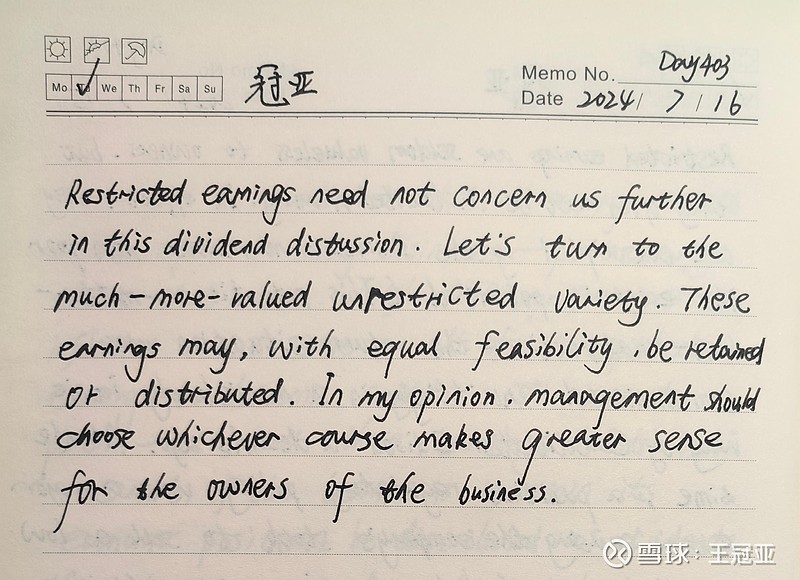 冠亚
Memo No. Day403
Mo Tu We Th Fr Sa Su
Date 2024/ 7 / 16
Restricted earnings need not concern us further
in this dividend distussion. Let's turn to the
much-more-valued unrestricted variety. These
earnings may, with equal feasibility, be retained
or distributed. In my opinion. management should
choose whichever course makes greater sense
for the owners of the business.
雪球:王冠亚